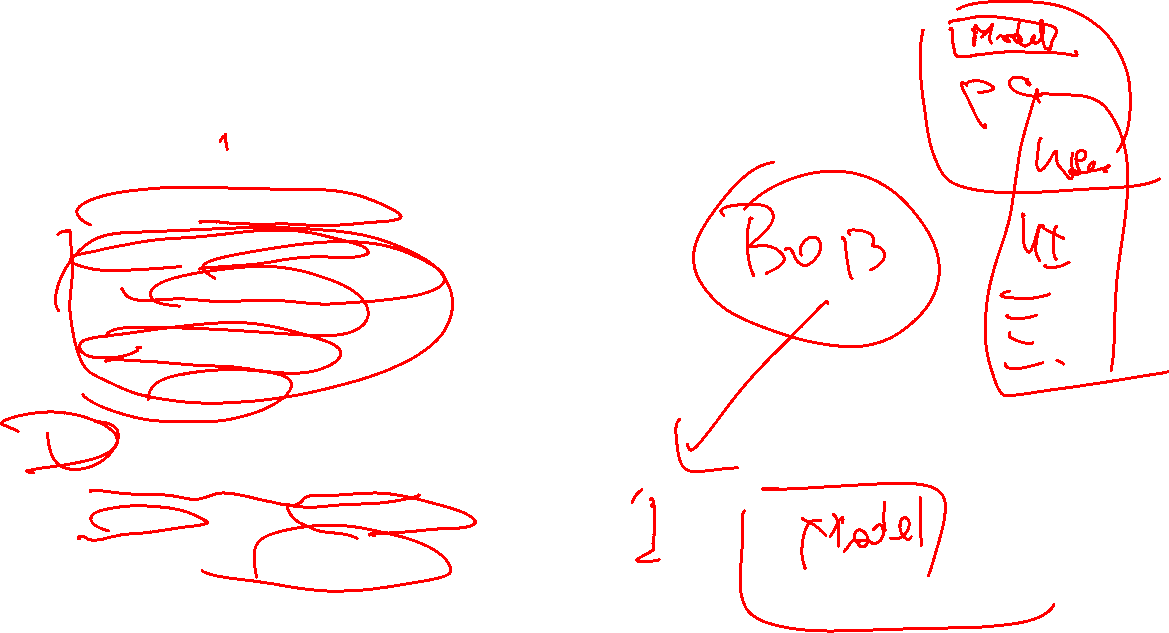 Model
PC
User
UI
1
BOB
1
Model